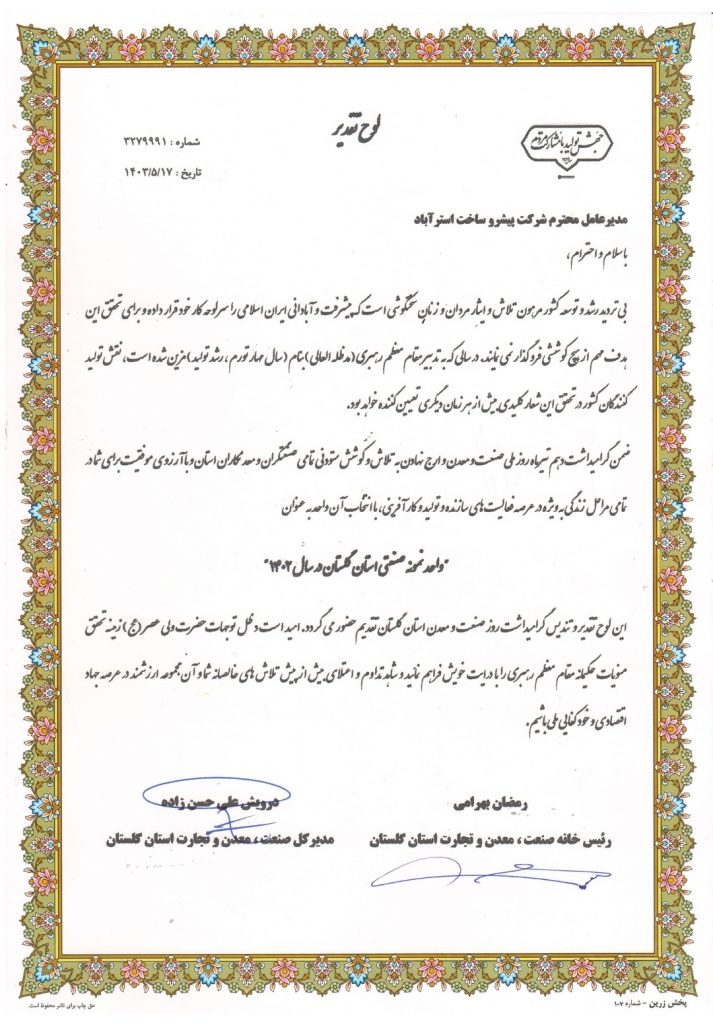 لوح تقدیر
جهش تولید با مشارکت مردم
شماره : ۳۲۷۹۹۹۱
تاریخ : ۱۴۰۳/۵/۱۷
مدیرعامل محترم شرکت پیشرو ساخت استرآباد
با سلام و احترام،
بی تردید رشد و توسعه کشور مرهون تلاش و ایثار مردان و زنان سختکوشی است که پیشرفت و آبادانی ایران اسلامی را سرلوحه کار خود قرار داده و برای تحقق این
هدف مهم از هیچ کوششی فروگذار نمی نمایند. در سالی که به تدبیر مقام معظم رهبری (مدظله العالی) بنام (سال مهار تورم ، رشد تولید) مزین شده است، نقش تولید
کنندگان کشور در تحقق این شعار کلیدی بیش از هر زمان دیگری تعیین کننده خواهد بود.
ضمن گرامیداشت دهم تیرماه روز ملی صنعت و معدن و ارج نهادن به تلاش و کوشش ستودنی تمامی صنعتگران و معدنکاران استان و با آرزوی موفقیت برای شما در
تمامی مراحل زندگی به ویژه در عرصه فعالیت های سازنده و تولید و کارآفرینی، با انتخاب آن واحد به عنوان
"واحد نمونه صنعتی استان گلستان در سال ۱۴۰۲"
این لوح تقدیر و تندیس گرامیداشت روز صنعت و معدن استان گلستان تقدیم حضور می گردد. امید است در ظل توجهات حضرت ولی عصر (عج) زمینه تحقق
منویات حکیمانه مقام معظم رهبری را با درایت خویش فراهم نمائید و شاهد تداوم و اعتلای بیش از پیش تلاش های خالصانه شما و آن مجموعه ارزشمند در عرصه جهاد
اقتصادی و خودکفایی ملی باشیم.
رمضان بهرامی
رئیس خانه صنعت ، معدن و تجارت استان گلستان
درویش علی حسن زاده
مدیر کل صنعت ، معدن و تجارت استان گلستان
پخش زرین - شماره ۱۰۷
حق چاپ برای ناشر محفوظ است.